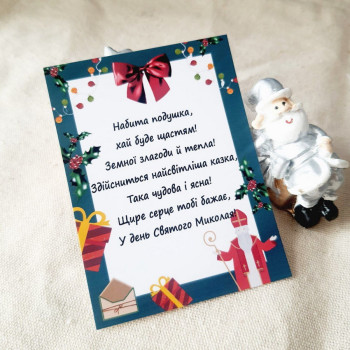 Набита подушка,
хай буде щастям!
Земної злагоди й тепла!
Здійсниться найсвітліша казка,
Така чудова і ясна!
Щире серце тобі бажає,
У день Святого Миколая!